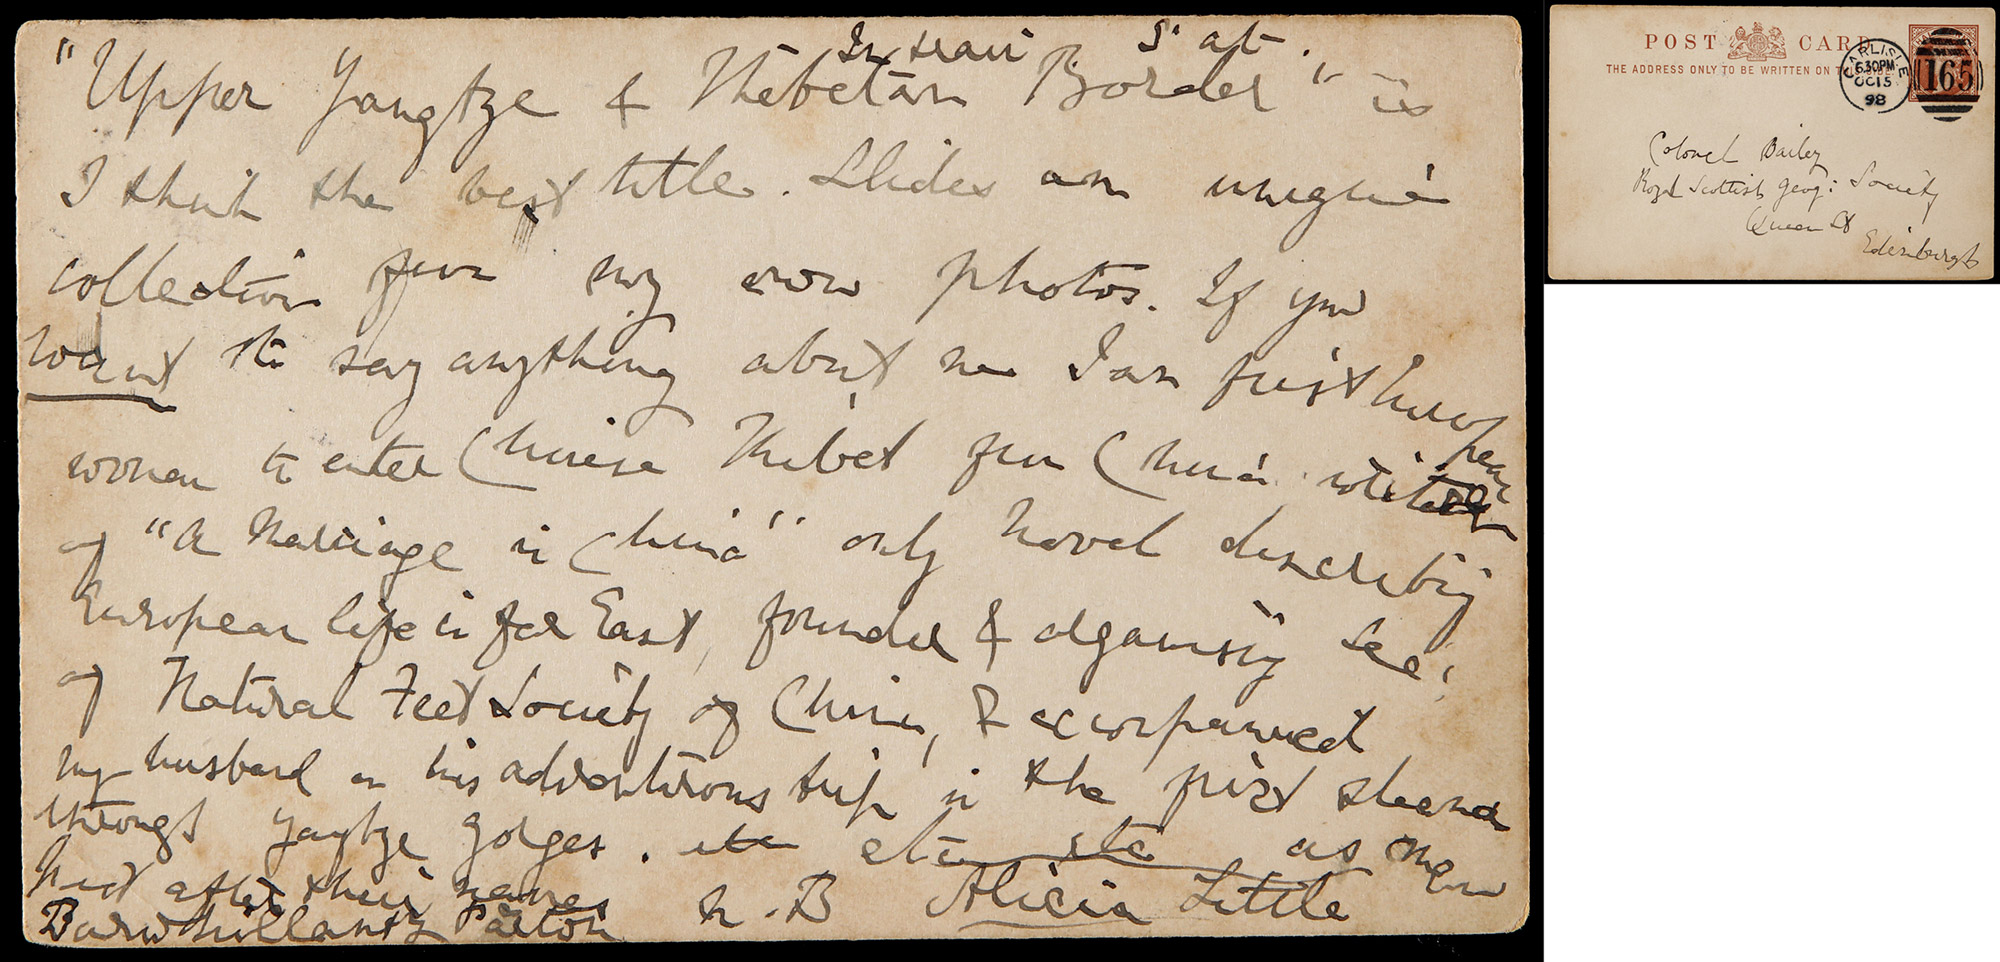 In train S. at.
"Upper Yangtze & Thebetan Border" is
I think the best title. Slides an unique
collection from my own photos. If you
want to say anything about me I am first European
woman to enter Chinese Thibet from China. writer
of "A Marriage in China" only novel describing
European life in far East, founder & organising Sec:
of Natural Feet Society of China, & accompanied
my husband on his adventurous trip in the first steamer
through Yangtze gorges. etc etc etc as men
put after their names
N.B Alicia Little
POST CARD
THE ADDRESS ONLY TO BE WRITTEN ON THIS SIDE
CARLISLE
6.30PM
OC15
98
165
Colonel Bailey
Royal Scottish Geog: Society
Queen St
Edinburgh